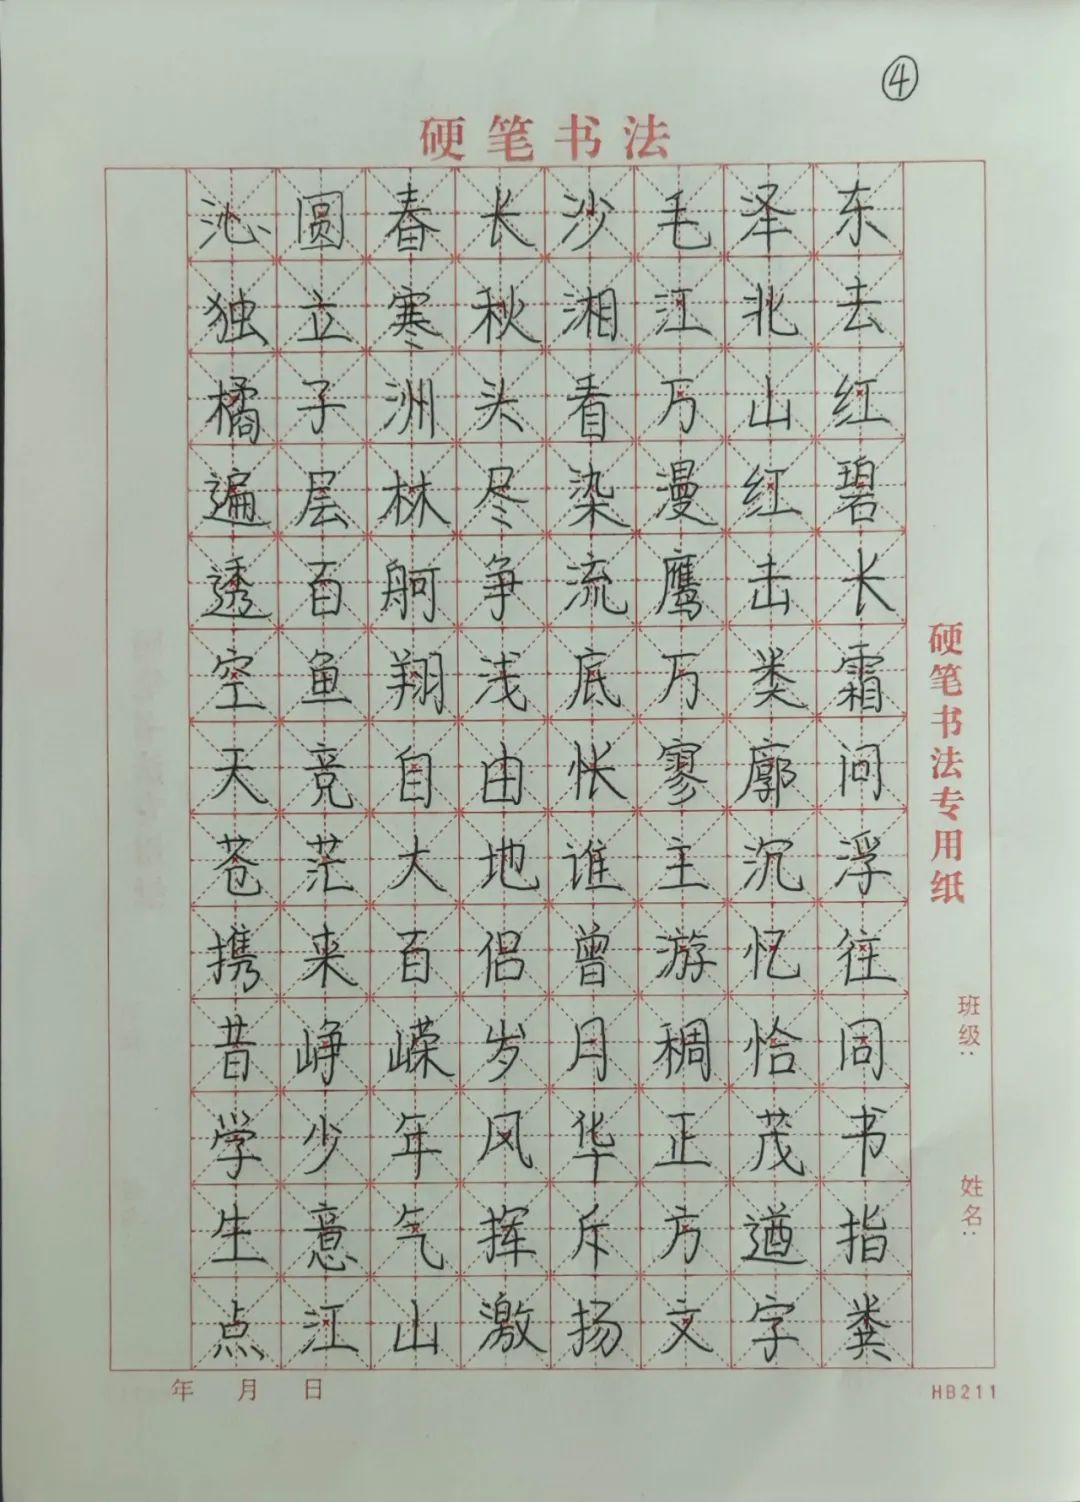 ④
硬笔书法
沁圆春长沙毛泽东
独立寒秋湘江北去
橘子洲头看万山红
遍层林尽染漫红碧
透百舸争流鹰击长
空鱼翔浅底万类霜
天竞自由怅寥廓问
苍茫大地谁主沉浮
携来百侣曾游忆往
昔峥嵘岁月稠恰同
学少年风华正茂书
生意气挥斥方遒指
点江山激扬文字粪
硬笔书法专用纸
班级:
姓名:
年 月 日
HB211